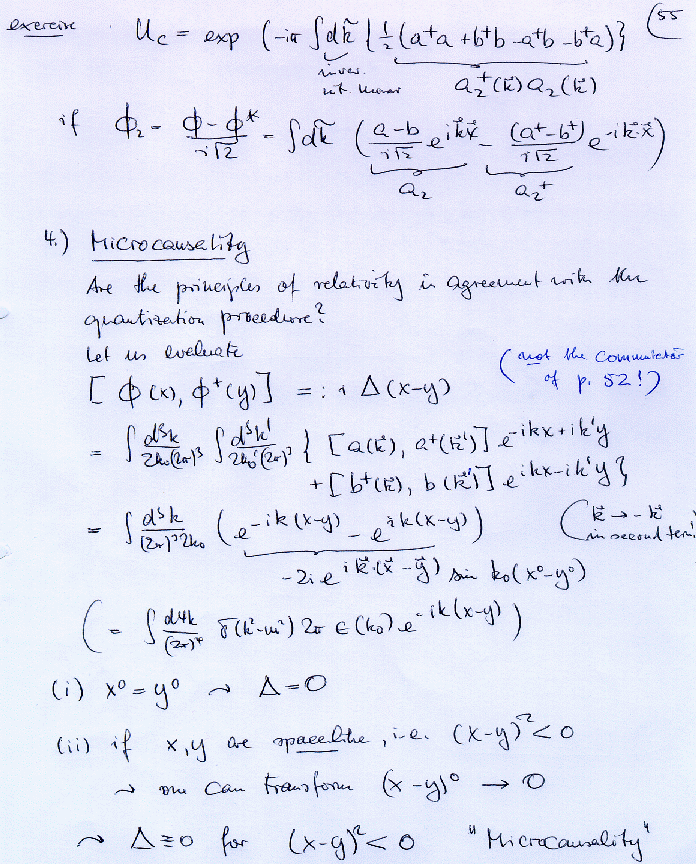 55
exercise U_c = exp (-iπ ∫dk̃ {½(a⁺a + b⁺b - a⁺b - b⁺a)}
a₂⁺(k⃗) a₂(k⃗)
if ϕ₂ = (ϕ - ϕ*)/(i√2) = ∫dk̃ ( (a-b)/(i√2) e^{ik⃗x⃗} - (a⁺-b⁺)/(i√2) e^{-ik⃗·x⃗} )
a₂ a₂⁺
4.) Microcausality
Are the principles of relativity in agreement with the
quantization proceedure?
Let us evaluate
(not the commutator
of p. 52!)
[ϕ(x), ϕ⁺(y)] =: i Δ(x-y)
= ∫ d³k/(2k₀(2π)³) ∫ d³k'/(2k₀'(2π)³) { [a(k⃗), a⁺(k⃗')] e^{-ikx+ik'y}
+ [b⁺(k⃗), b(k⃗')] e^{ikx-ik'y} }
= ∫ d³k/((2π)³2k₀) (e^{-ik(x-y)} - e^{ik(x-y)})
(k⃗ → -k⃗
in second term!
-2i e^{ik⃗·(x⃗-y⃗)} sin k₀(x⁰-y⁰)
(= ∫ d⁴k/(2π)⁴ δ(k²-m²) 2π ϵ(k₀) e^{-ik(x-y)})
(i) x⁰ = y⁰ ⤳ Δ = 0
(ii) if x, y are spacelike, i.e. (x-y)² < 0
⤳ one can transform (x-y)⁰ → 0
⤳ Δ ≡ 0 for (x-y)² < 0 "Microcausality"